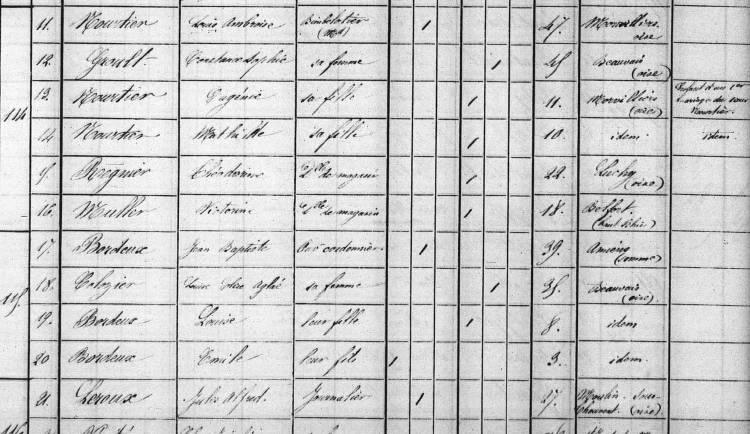 11. Mourtier Louis Ambroise Bimbelotier (Md) 1 47. Morvillers. oise
12. Groult. Constance Sophie sa femme 1 45 Beauvais (oise)
114
13. Mourtier Eugénie sa fille 1 11. Morvillers (oise) Enfant d'un 1er mariage du sieur Mourtier.
14 Mourtier Mathilde sa fille 1 10. idem. idem.
Regnier lle de magasin 1 22. Luchy (oise)
16. Muller Victorine lle de magasin 1 18. Belfort. (haut Rhin)
17. Bordeux Jean Baptiste cordonnier 1 39. Amiens (somme)
115
18. Louise Aglaé sa femme 1 35. Beauvais (oise).
19. Bordeux Louise leur fille 1 8. idem
20 Bordeux Emile leur fils 1 3. idem.
21. Leroux Jules Alfred. Journalier 1 Moulin sous (oise)